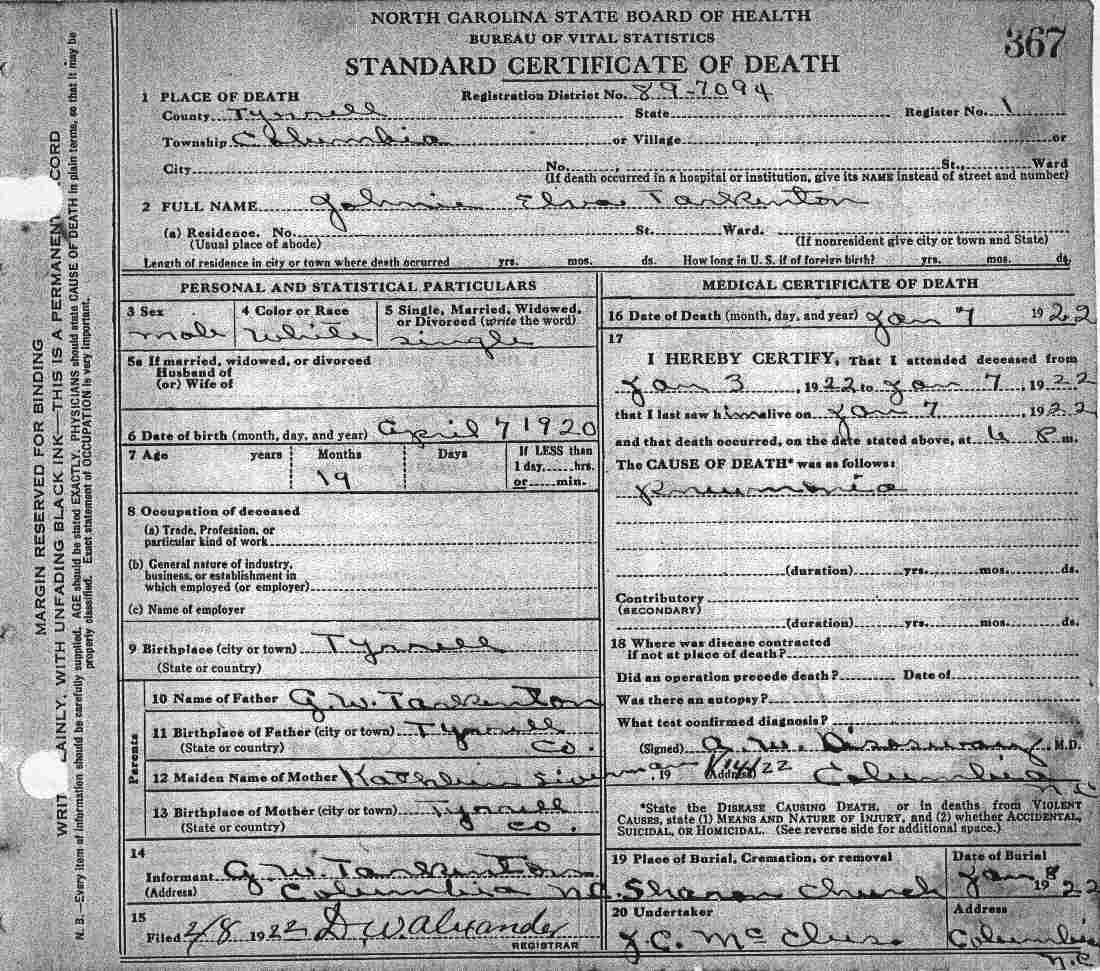 NORTH CAROLINA STATE BOARD OF HEALTH
BUREAU OF VITAL STATISTICS
367
STANDARD CERTIFICATE OF DEATH
1 PLACE OF DEATH Registration District No. 89-7094
County Tyrrell State Register No. 1
Township Columbia or Village or
City No. , St., Ward
(If death occurred in a hospital or institution, give its NAME instead of street and number)
2 FULL NAME Johnie Elva Tarkenton
(a) Residence. No. St. Ward.
(Usual place of abode) (If nonresident give city or town and State)
Length of residence in city or town where death occurred yrs. mos. ds. How long in U. S. if of foreign birth? yrs. mos. ds.
PERSONAL AND STATISTICAL PARTICULARS
3 Sex 4 Color or Race 5 Single, Married, Widowed, or Divorced (write the word)
male white single
5a If married, widowed, or divorced
Husband of
(or) Wife of
6 Date of birth (month, day, and year) April 7 1920
7 Age years Months Days If LESS than
1 day, hrs.
or min.
19
8 Occupation of deceased
(a) Trade, Profession, or
particular kind of work
(b) General nature of industry,
business, or establishment in
which employed (or employer)
(c) Name of employer
9 Birthplace (city or town) Tyrrell
(State or country)
Parents
10 Name of Father G.W. Tarkenton
11 Birthplace of Father (city or town) Tyrrell
(State or country) Co.
12 Maiden Name of Mother Kathleen
13 Birthplace of Mother (city or town) Tyrrell
(State or country) Co.
14
Informant G.W. Tarkenton
(Address) Columbia N.C.
15
Filed 2/8 1922 D.W. Alexander
REGISTRAR
MEDICAL CERTIFICATE OF DEATH
16 Date of Death (month, day, and year) Jan 7 1922
17
I HEREBY CERTIFY, That I attended deceased from
Jan 3, 1922 to Jan 7, 1922
that I last saw him alive on Jan 7, 1922
and that death occurred, on the date stated above, at 6 P m.
The CAUSE OF DEATH* was as follows:
Pneumonia
(duration) yrs. mos. ds.
Contributory
(SECONDARY)
(duration) yrs. mos. ds.
18 Where was disease contracted
if not at place of death?
Did an operation precede death? Date of
Was there an autopsy?
What test confirmed diagnosis?
(Signed) M.D.
, 19 22 (Address) Columbia
N.C.
*State the DISEASE CAUSING DEATH, or in deaths from VIOLENT
CAUSES, state (1) MEANS AND NATURE OF INJURY, and (2) whether ACCIDENTAL,
SUICIDAL, OR HOMICIDAL. (See reverse side for additional space.)
19 Place of Burial, Cremation, or removal Date of Burial
Sharon Church Jan 8 1922
20 Undertaker Address
J.C. Columbia
N.C
MARGIN RESERVED FOR BINDING
WRIT LAINLY, WITH UNFADING BLACK INK—THIS IS A PERMANENT CORD
N. B.—Every item of information should be carefully supplied. AGE should be stated EXACTLY. PHYSICIANS should state CAUSE OF DEATH in plain terms, so that it may be
properly classified. Exact statement of OCCUPATION is very important.